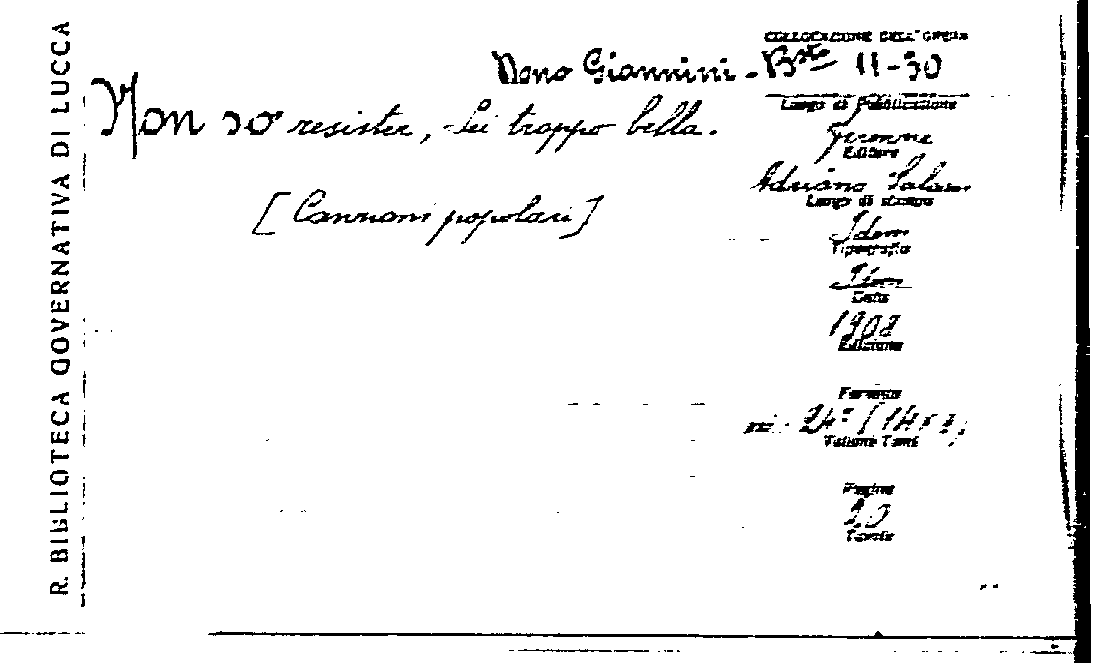 R. BIBLIOTECA GOVERNATIVA DI LUCCA
COLLOCAZIONE DELL'OPERA
Dono Giannini - Bta 11-30
Non so resister, sei troppo bella.
[Canzoni popolari]
Luogo di pubblicazione
Firenze
Editore
Adriano Salani
Luogo di stampa
Idem
Tipografia
Idem
Data
1908
Edizione
Formato
24º
Volume Tomi
Pagine
Tavole